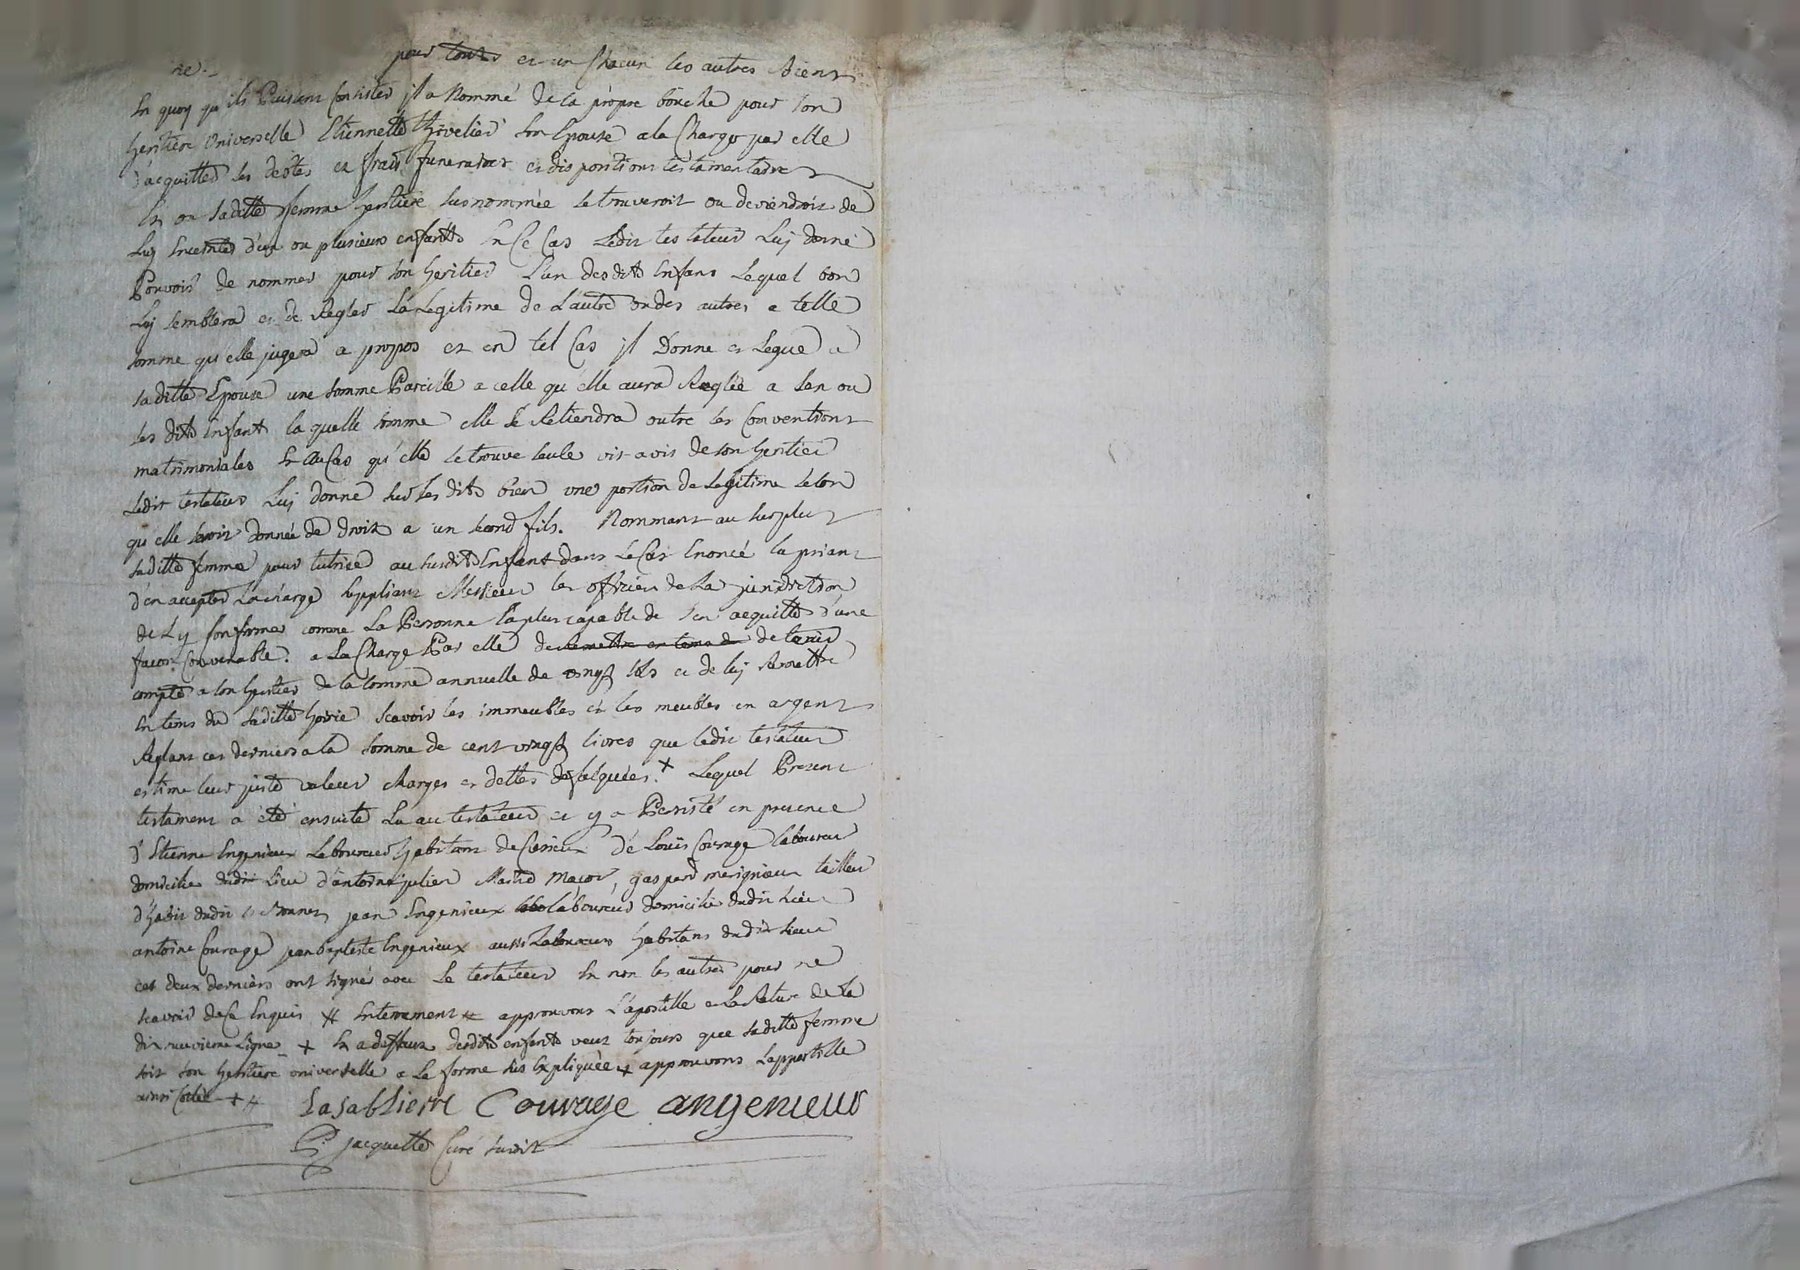 ne.- pour tout et un Chacun les autres biens
En quoy qu'ils Puissent Consister jl a Nommé de sa propre bouche pour son
heritiere Universelle Etiennette Thivelier son Epouse a la Charge par elle
d'acquitter ses debtes et frais funeraires et dispositions testamentaire
En ou sa ditte femme heritiere susnommée se trouveroit ou deviendroit de
Luy Enceinte d'un ou plusieurs enfants En Ce Cas Ledit testateur Luy donne
Pouvoir de nommer pour son heritier L'un desdits Enfans Lequel bon
Luy semblera et de Regler La Legitime de L'autre ou des autres a telle
somme qu'elle jugera a propos et en tel Cas jl Donne et Legue a
sa ditte Epouse une somme Pareille a celle qu'elle aura Reglée a son ou
ses dits Enfant la quelle somme elle se Retiendra outre ses Conventions
matrimoniales En au Cas qu'elle se trouve seule vis-a-vis de son heritier
Ledit testateur Luy donne sur ses dits bien une portion de Legitime selon
qu'elle seroit donnée de droit a un second fils. Nommant au surplus
sa ditte femme pour tutrice au susdits Enfant dans Le Cas Enoncé la priant
d'en accepter La charge suppliant Messieurs les officiers de La jurisdiction
de L'y Confirmer comme La Personne la plus capable de s'en acquitter d'une
facon Convenable. a La Charge Par elle de remettre en tems de de tenir
compte a son heritier de la somme annuelle de vingt Liv et de luy Remettre
En tems du sa ditte hoirie scavoir les immeubles et les meubles en argent
Reglant ces derniers a la somme de cent vingt livres que ledit testateur
estime leur juste valeur charges et dettes defalquées. + Lequel Present
testament a été ensuite Lu au testateur et y a Persisté en presence
d'Etienne Engenieux Laboureur habitant de de Louis Courage laboureur
domicilie dudit Lieu d'antoine julien Maitre macon, gaspard merignieux tailleur
d'habit dudit jean Engenieux labo laboureur domicilie dudit Lieu
antoine Courage jean baptiste Engenieux aussi Laboureurs habitans dudit Lieu
ces deux derniers ont signés avec Le testateur En non les autres pour ne
scavoir de Ce Enquis # Enterrement # approuvons L'apostille et La Rature de La
dix neuvieme Ligne - + En a deffaut desdits enfants veut toujours que sa ditte femme
soit son heritiere universelle a La forme sus Expliquée + approuvons L'appostille
ainsi Cotée + #
Lasabliere Courage angenieux
P. jacquette Curé susdit